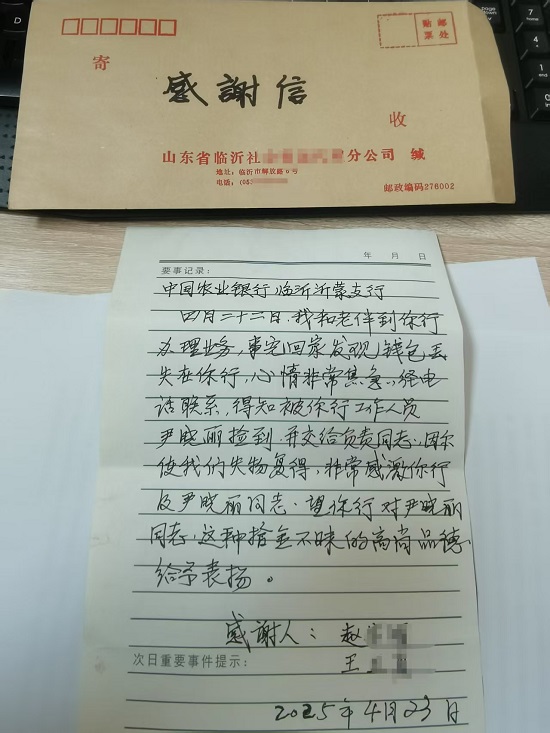 寄
感謝信
贴 邮
票 处
收
山东省临沂社 分公司 缄
地址:临沂市解放路6号
电话:(05
邮政编码276002
年 月 日
要事记录:
中国农业银行临沂沂蒙支行
四月二十二日,我和老伴到你行
办理业务,事完回家发现钱包丢
失在你行,心情非常焦急,经电
话联系,得知被你行工作人员
尹晓丽捡到,并交给负责同志,因尔
使我们失物复得,非常感激你行
及尹晓丽同志。望你行对尹晓丽
同志,这种拾金不昧的高尚品德
给予表扬。
感謝人:赵
次日重要事件提示: 王
2025年4月23日